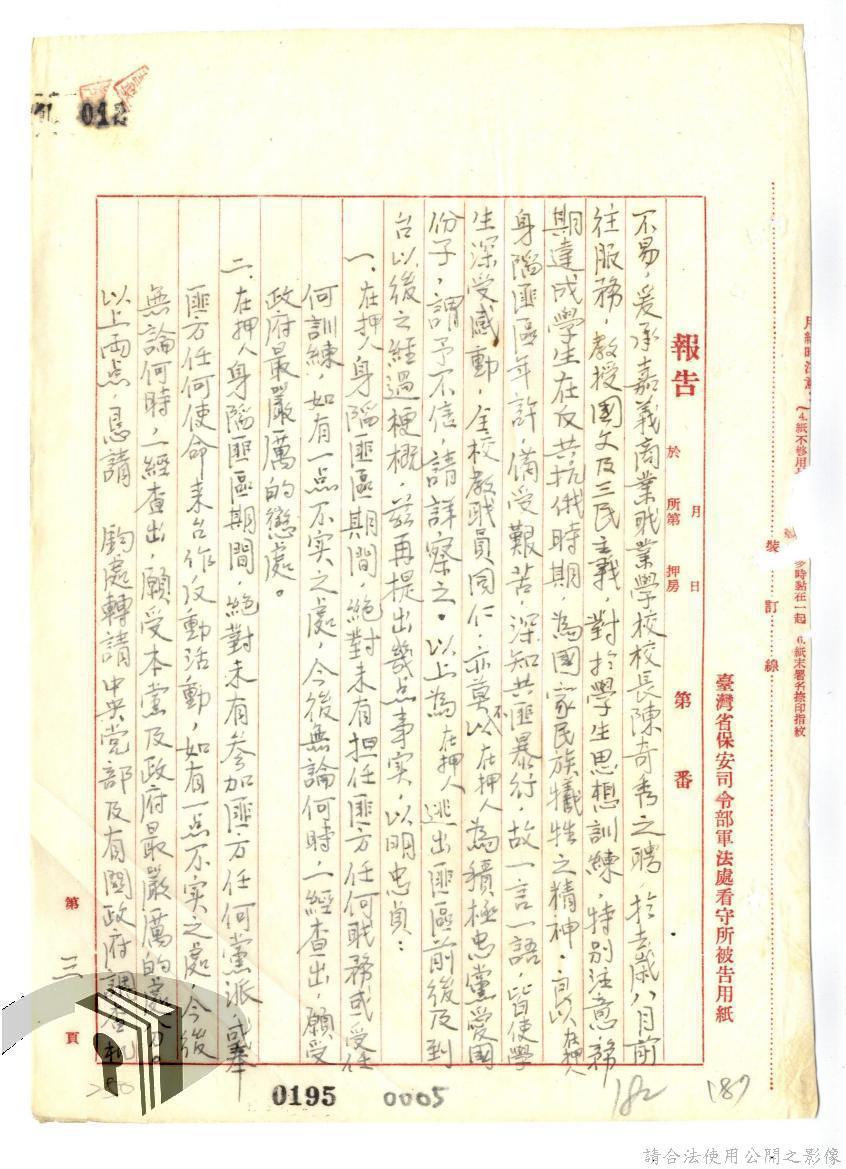 012
用紙時注意
(4.紙不够用
多時黏在一起 6.紙末署名捺印指紋
裝訂線
臺灣省保安司令部軍法處看守所被告用紙
報告
於 月 日
所第 押房
第 番
不易,爰承嘉義商業職業學校校長陳奇秀之聘,於去歲八月前
往服務,教授國文及三民主義,對於學生思想訓練,特別注意務
期達成學生在反共抗俄時期,為國家民族犧牲之精神。良以在押人
身陷匪區年許,備受艱苦,深知共匪暴行,故一言一語,皆使學
生深受感動,全校教職員同仁,亦莫不以在押人為積極忠黨愛國
份子,謂予不信,請詳察之。以上為在押人逃出匪區前後及到
台以後之經過梗概,茲再提出幾点事实,以明忠貞:
一、在押人身陷匪區期間,絕對未有担任匪方任何職務或受任
何訓練,如有一点不实之處,今後無論何時,一經查出,願受
政府最嚴厲的懲處。
二、在押人身陷匪區期間,絕對未有參加匪方任何黨派,或奉
匪方任何使命来台作反動活動,如有一点不实之處,今後
無論何時,一經查出,願受本黨及政府最嚴厲的處分。
以上両点,懇請 鈞處轉請中央党部及有関政府調查机
第三頁
0195
0005
182
187
請合法使用公開之影像